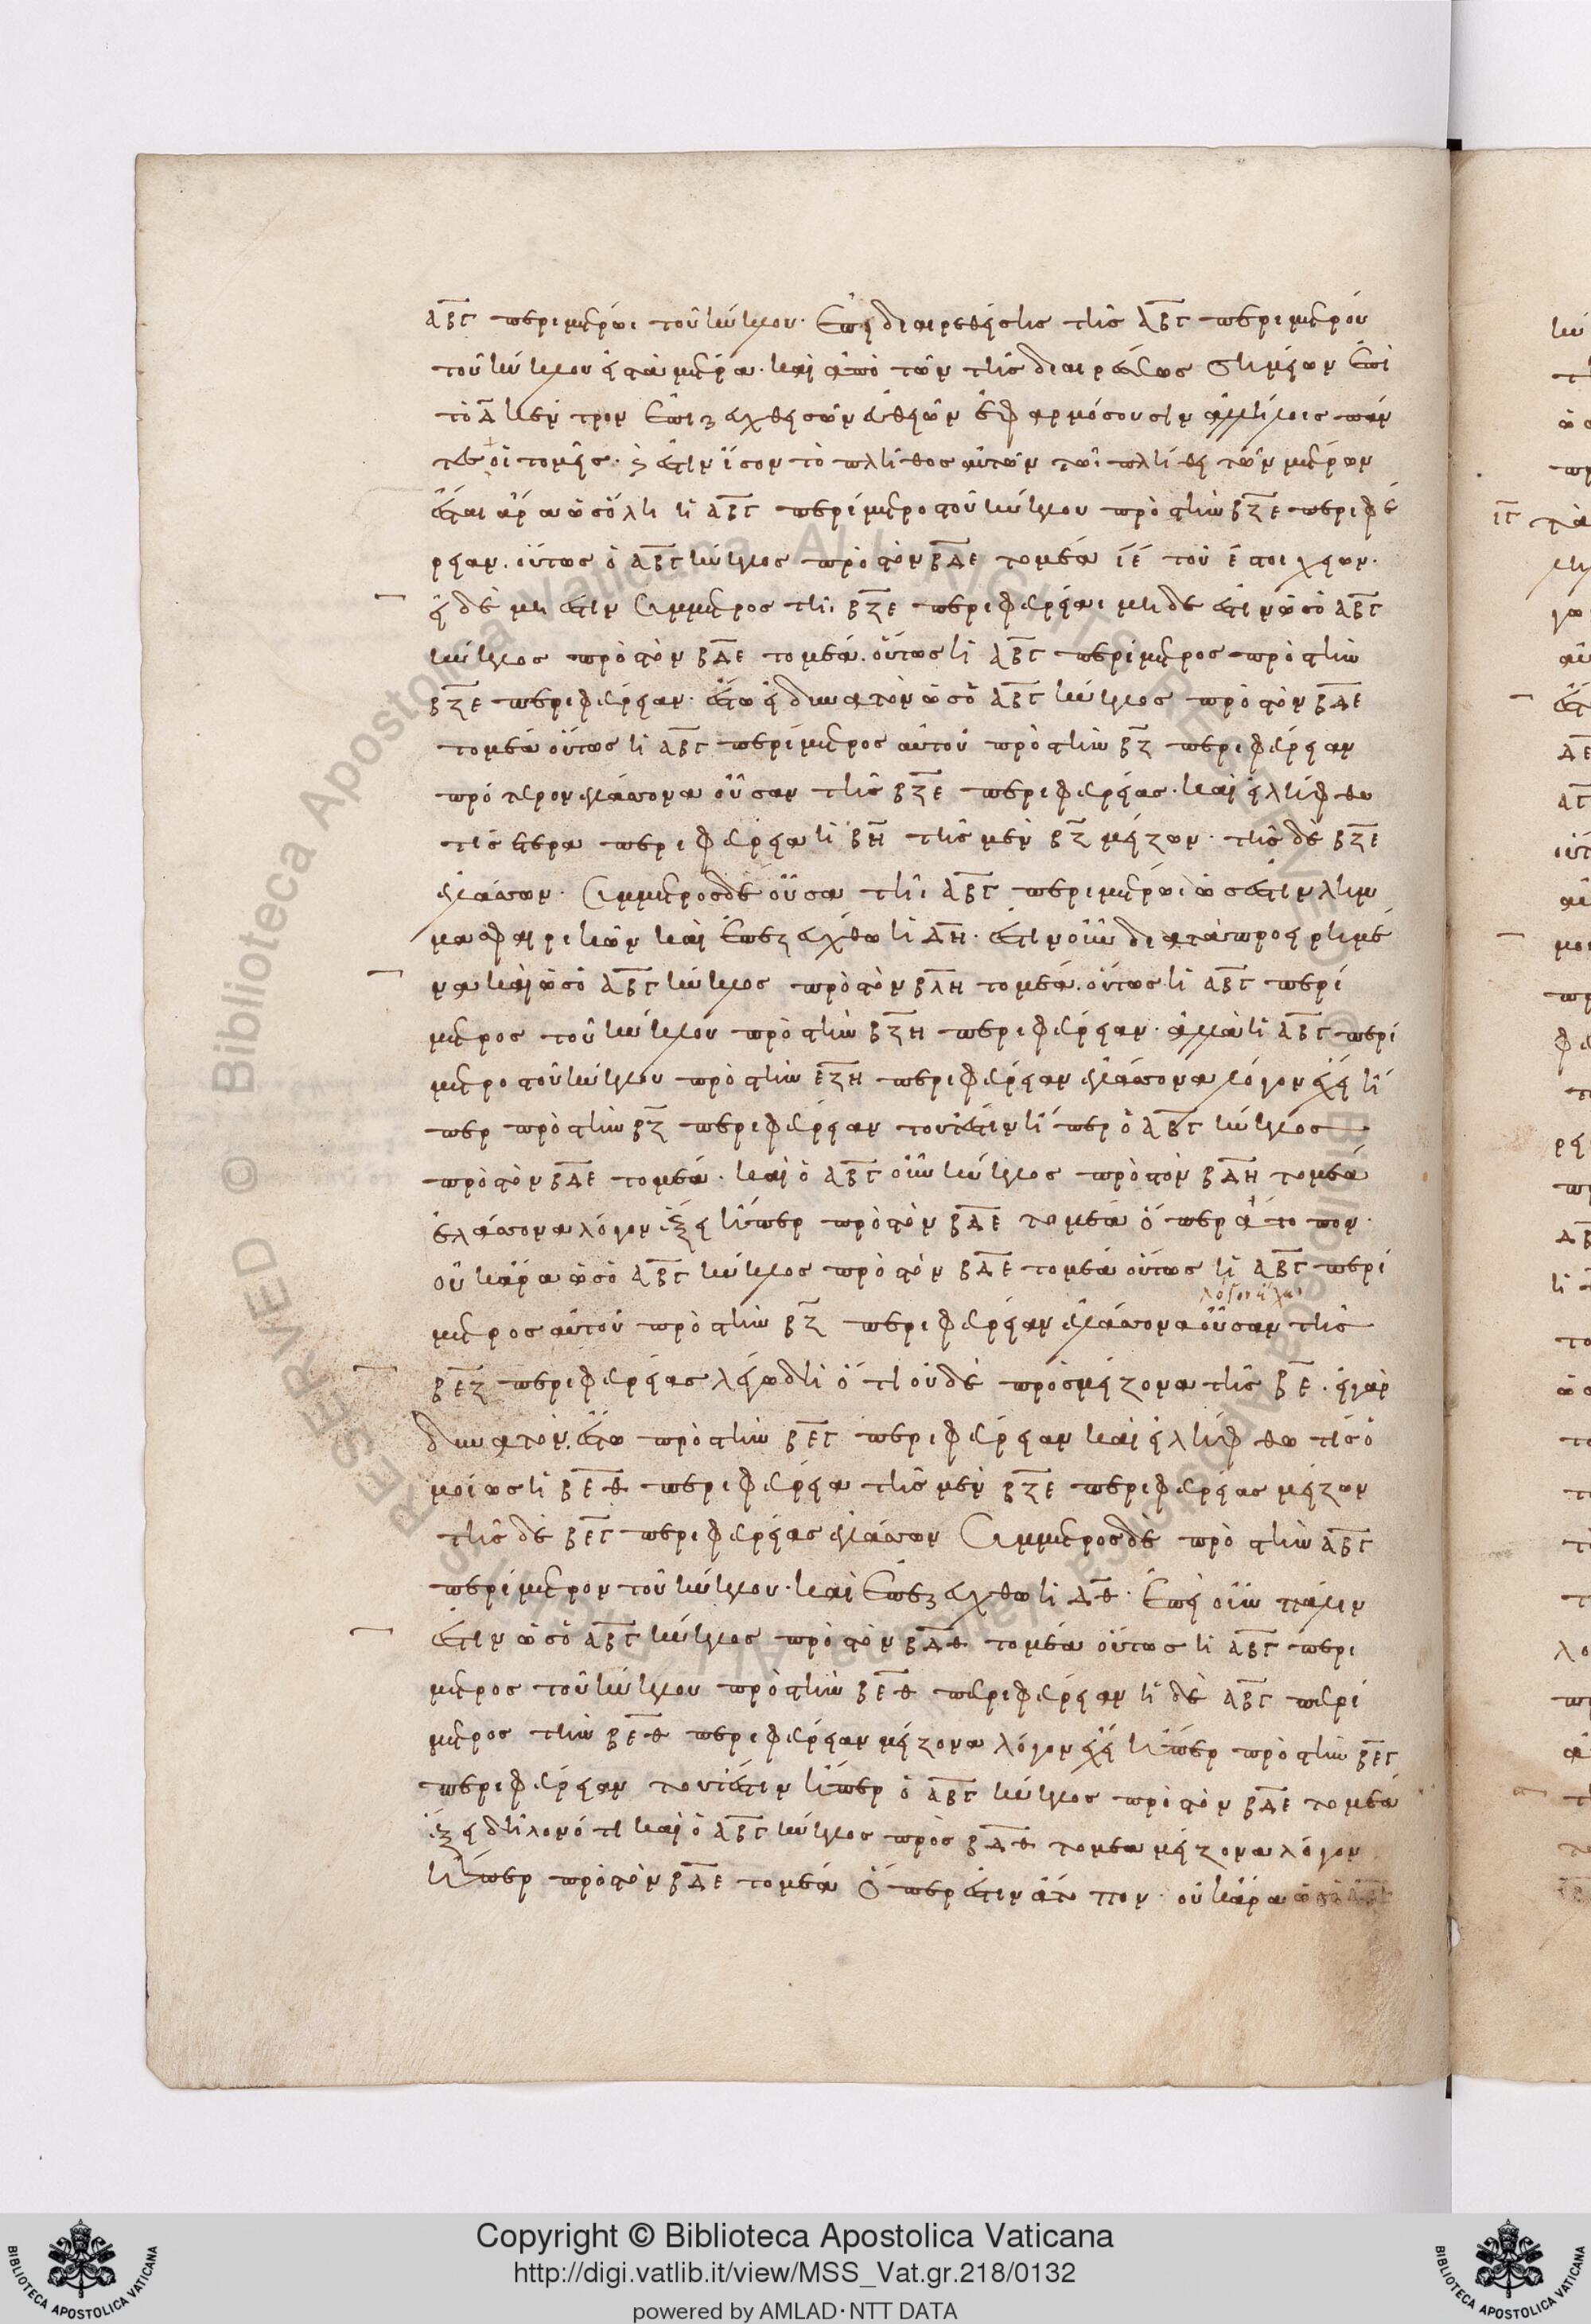 ΑΒΓ περιμέτρωι τοῦ κύκλου. ἐπεὶ διαιρεθείσης τῆς ΑΒΓ περιμέτρου
τοῦ κύκλου εἰς τὰ μέτρα. καὶ ἀπὸ τῶν τῆς διαιρέσεως σημείων ἐπὶ
τὸ Δ κέντρον ἐπιζευχθεισῶν εὐθειῶν ἐφαρμόσουσιν ἀλλήλοις πάν
τες οἱ τομεῖς. καὶ ἔστιν ἴσον τὸ πλῆθος αὐτῶν τῶι πλήθει τῶν μέτρων
ἔσται ἄρα ὡς ὅλη ἡ ΑΒΓ περίμετρο τοῦ κύκλου πρὸς τὴν ΒΖΕ περιφέ
ρειαν. οὕτως ὁ ΑΒΓ κύκλος πρὸς τὸν ΒΔΕ τομέα ιε τοῦ ε στοιχείων.
εἰ δὲ μή ἐστιν σύμμετρος τῆι ΒΖΕ περιφερείαι μηδέ ἐστιν ὡς ὁ ΑΒΓ
κύκλος πρὸς τὸν ΒΔΕ τομέα. οὕτως ἡ ΑΒΓ περίμετρος πρὸς τὴν
ΒΖΕ περιφέρειαν. ἔστω εἰ δυνατὸν ὡς ὁ ΑΒΓ κύκλος πρὸς τὸν ΒΔΕ
τομέα οὕτως ἡ ΑΒΓ περίμετρος αὐτοῦ πρὸς τὴν ΒΖ περιφέρειαν
πρότερον ἐλάττονα οὖσαν τῆς ΒΖΕ περιφερείας. καὶ εἰλήφθω
τις ἑτέρα περιφέρεια ἡ ΒΗ τῆς μὲν ΒΖ μείζων. τῆς δὲ ΒΖΕ
ἐλάττων. σύμμετρος δὲ οὖσα τῆι ΑΒΓ περιμέτρωι ὡς ἔστιν λῆμ
μα σφαιρικῶν καὶ ἐπεζεύχθω ἡ ΔΗ. ἔστιν οὖν διὰ τὰ προειρημέ
να καὶ ὡς ὁ ΑΒΓ κύκλος πρὸς τὸν ΒΛΗ τομέα. οὕτως ἡ ΑΒΓ περί
μετρος τοῦ κύκλου πρὸς τὴν ΒΖΗ περιφέρειαν. ἀλλὰ ἡ ΑΒΓ περί
μετρο τοῦ κύκλου πρὸς τὴν ΕΖΗ περιφέρειαν ἐλάττονα λόγον ἔχει ἤ
περ πρὸς τὴν ΒΖ περιφέρειαν τουτέστιν ἤπερ ὁ ΑΒΓ κύκλος
πρὸς τὸν ΒΔΕ τομέα. καὶ ὁ ΑΒΓ οὖν κύκλος πρὸς τὸν ΒΔΗ τομέα
ἐλάττονα λόγον ἕξει ἤπερ πρὸς τὸν ΒΔΕ τομέα ὅπερ ἄτοπον.
οὐκ ἄρα ὡς ὁ ΑΒΓ κύκλος πρὸς τὸν ΒΔΕ τομέα οὕτως ἡ ΑΒΓ περί
μετρος αὐτοῦ πρὸς τὴν ΒΖ περιφέρειαν ἐλάττονα οὖσαν τῆς
ΒΕΖ περιφερείας λέγω δὴ ὅτι οὐδὲ πρὸς μείζονα τῆς ΒΕ. εἰ γὰρ
δυνατόν. ἔστω πρὸς τὴν ΒΕΓ περιφέρειαν καὶ εἰλήφθω τις ὁ
μοίως ἡ ΒΕΘ περιφέρεια τῆς μὲν ΒΖΕ περιφερείας μείζων
τῆς δὲ ΒΕΓ περιφερείας ἐλάττων σύμμετρος δὲ πρὸς τὴν ΑΒΓ
περίμετρον τοῦ κύκλου. καὶ ἐπεζεύχθω ἡ ΔΘ. ἐπεὶ οὖν πάλιν
ἔστιν ὡς ὁ ΑΒΓ κύκλος πρὸς τὸν ΒΔΘ τομέα οὕτως ἡ ΑΒΓ περί
μετρος τοῦ κύκλου πρὸς τὴν ΒΕΘ περιφέρειαν ἡ δὲ ΑΒΓ περί
μετρος τὴν ΒΕΘ περιφέρειαν μείζονα λόγον ἔχει ἤπερ πρὸς τὴν ΒΕΓ
περιφέρειαν τουτέστιν ἤπερ ὁ ΑΒΓ κύκλος πρὸς τὸν ΒΔΕ τομέα
ἕξει δηλονότι καὶ ὁ ΑΒΓ κύκλος πρὸς ΒΔΘ τομέα μείζονα λόγον
ἤπερ πρὸς τὸν ΒΔΕ τομέα ὅπερ ἐστὶν ἄτοπον. οὐκ ἄρα ὡς ὁ ΑΒΓ
Copyright © Biblioteca Apostolica Vaticana
http://digi.vatlib.it/view/MSS_Vat.gr.218/0132
powered by AMLAD·NTT DATA